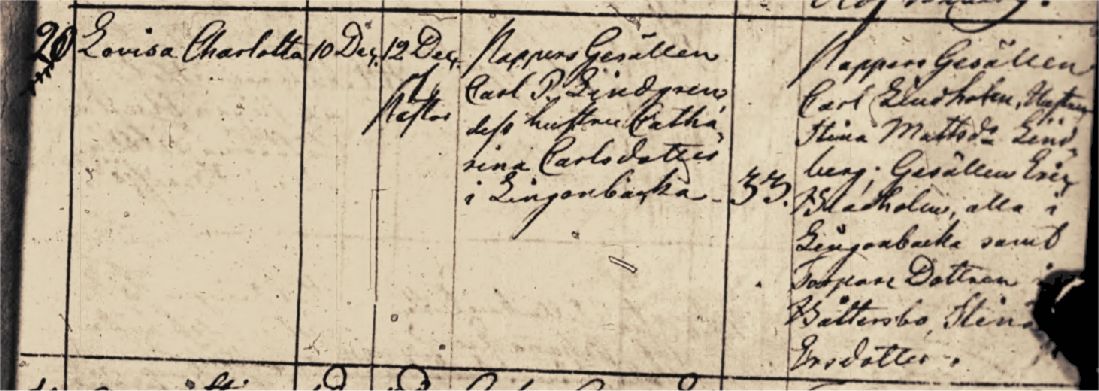 20
Lovisa Charlotta
10 Dec.
12 Dec.
af
Pastor
Kappers Gesällen
Carl P. Lindgren,
dess hustru Catha,
rina Carlsdotter
i Lingonbacka
33.
Kappers Gesällen
Carl Lindholm, Hustrun
Stina Mattsdr Lind,
berg; Gesällen Eric
Bladholm, alla i
Lingonbacka samt
Torpare Dottren i
Båttersbo, Stina
Ersdotter.